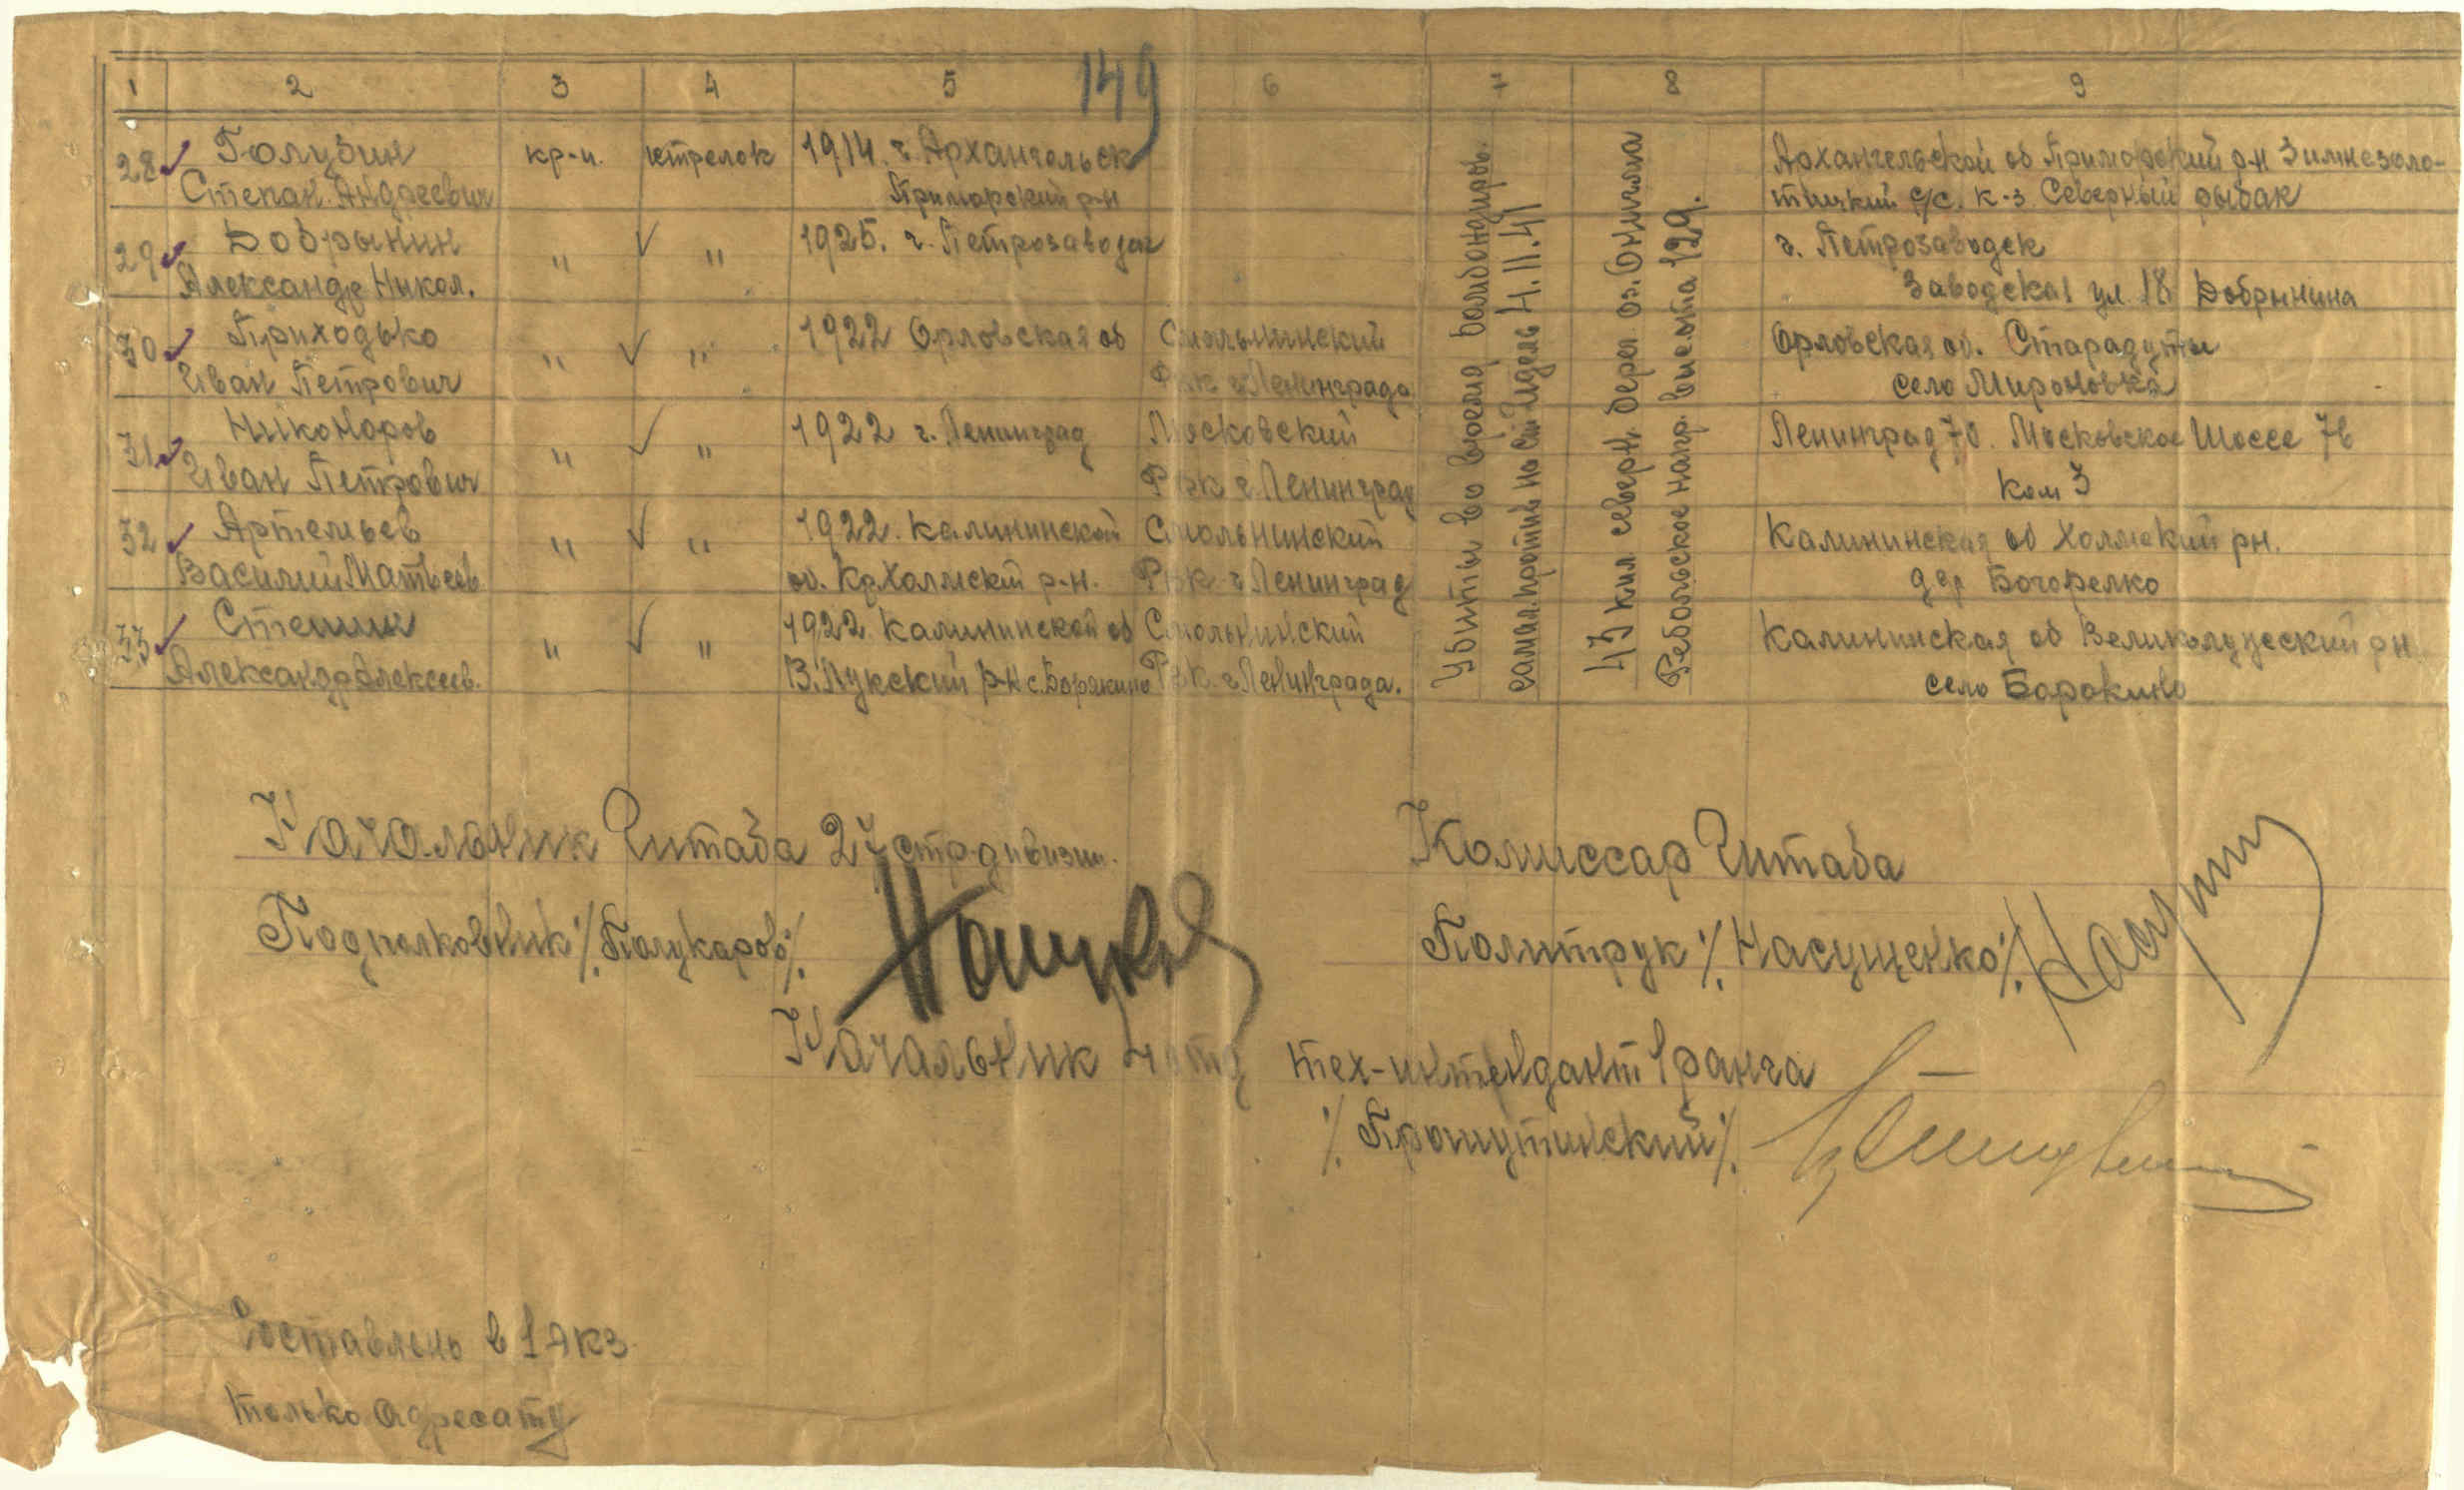 149
1 2 3 4 5 6 7 8 9
28 Голубин кр-ц. стрелок 1914. г. Архангельск Архангельской об Приморский р-н Зимнезоло-
Степан Андреевич Приморский р-н тицкий с/с. к-з Северный рыбак
29 Добрынин " " 1925. г. Петрозаводск г. Петрозаводск
Александр Никол. Заводская ул. 18 Добрынина
30 Приходько " " 1922 Орловская об Смольнинский Орловская об.
Иван Петрович РВК г Ленинграда село Мироновка
31 Никоноров " " 1922 г. Ленинград Московский Ленинград 70. Московское Шоссе
Иван Петрович РВК г. Ленинград ком 3
32 Артемьев " " 1922. Калининской Смольнинский Калининская об Холмский рн.
Василий Матвеев. об. Холмский р-н. РВК г Ленинград дер
33 Степин " " 1922. Калининской об Смольнинский Калининская об Великолукский рн
Александр Алексеев. В. Лукский р-н с. Борякино РВК г Ленинграда. село Борокино
Убиты во время бомбондиров.
самал. против на ст Идель 4.11.41
43 кил северн. берег оз. Онигма
Ребольское напр. высота 129.
Начальник Штаба 27 стр. дивизии. Комиссар Штаба
Подполковник /Полукаров/. Политрук /Насущенко/.
Начальник 4 отд тех-интендант 1 ранга
/Прошутинский/.
Составлено в 1 экз.
только адресату